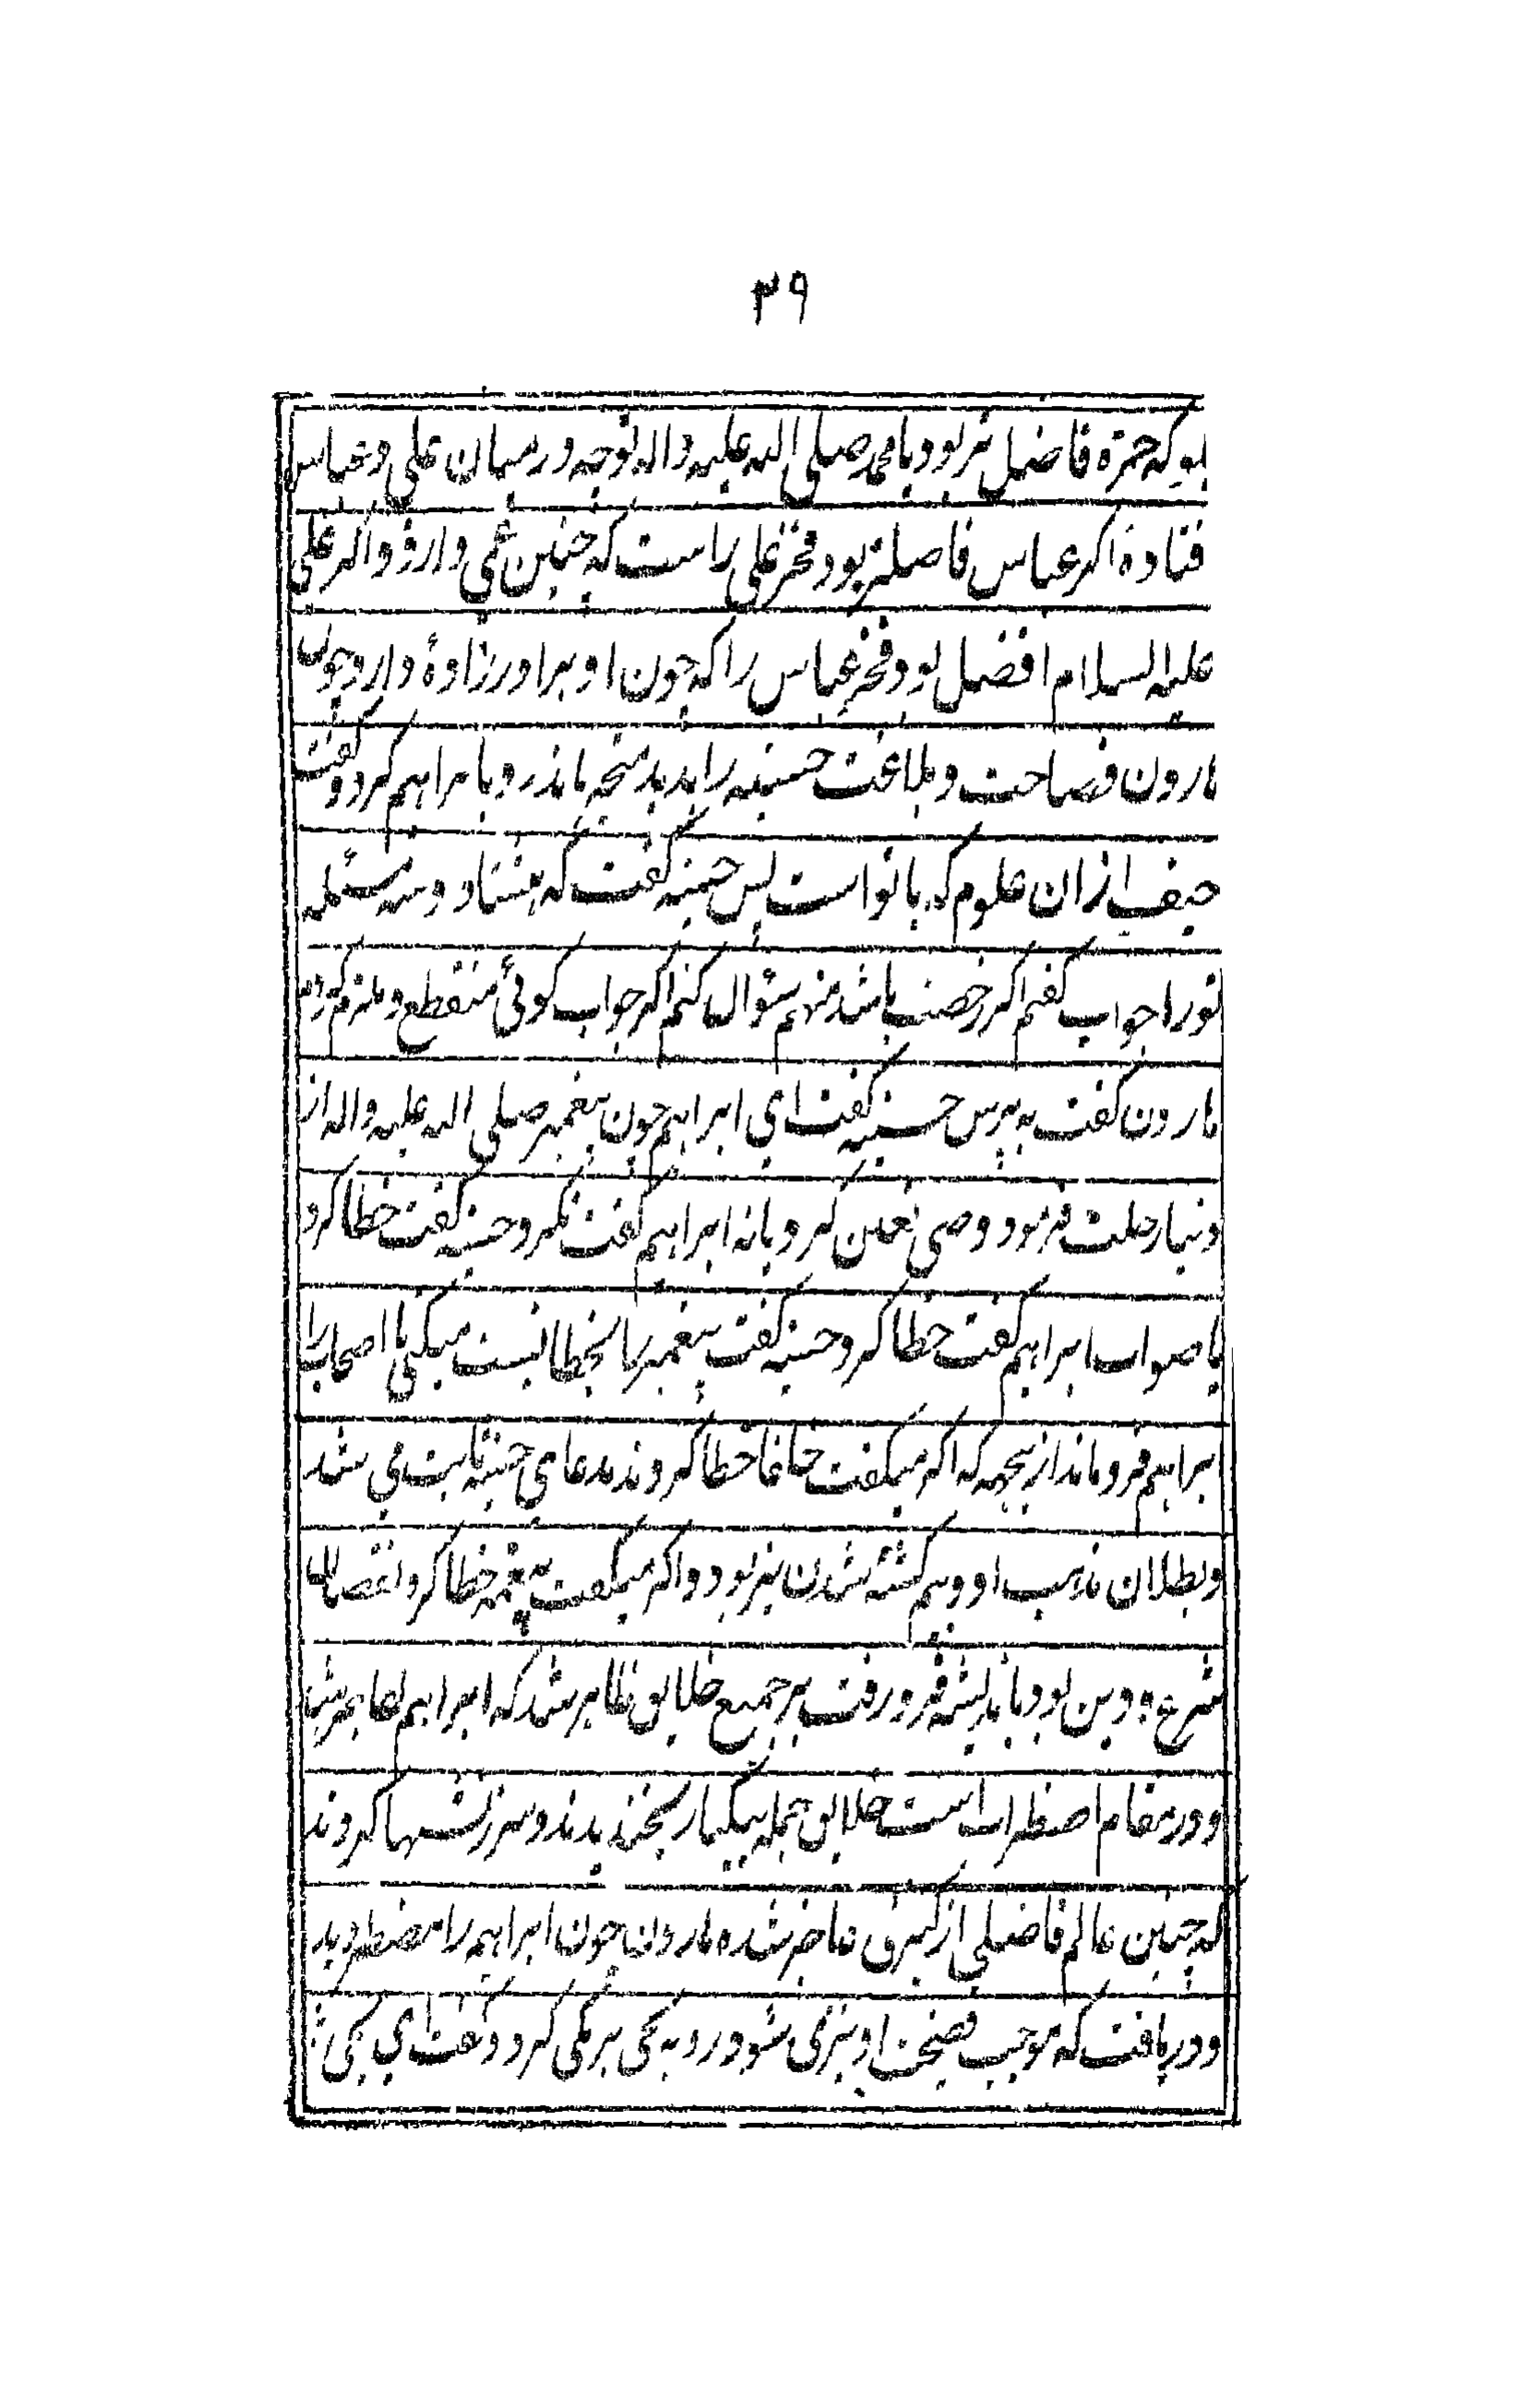 ۳۹
بکو که حمزه فاضل تر بود یا محمد صلی الله علیه واله توجه در میان علی و عباس
فتادهٔ اکر عباس فاضلتر بود فخر علی راست که چنین عمی دارد و اکر علی
علیه السلام افضل بود فخر عباس را که چون او برادرزادهٔ دارد چون
هارون فصاحت و بلاغت حسنیه را بدید متحیر بماند رو با براهیم کرد و کفت
حیف ازان علوم که با تو است پس حسنیه کفت که هشتاد و سه مسئله
تورا جواب کفتم اکر رخصت باشد منهم سئوال کنم اکر جواب کوئی منقطع و ملزم کردم
هارون کفت بپرس حسنیه کفت ای ابراهیم چون پیغمبر صلی الله علیه واله از
دنیا رحلت فرمود وصی تعین کرد یا نه ابراهیم کفت نکرد حسنیه کفت خطا کرد
یا صواب ابراهیم کفت خطا کرد حسنیه کفت پیغمبر را بخطا نسبت میکنی یا اصحاب را
ابراهیم فرو ماند از بجهه که اکر میکفت خلفا خطا کردند مدعای حسنیه ثابت می شد
و بطلان مذهب او و بیم کشته شدن نیز بود و اکر میکفت پیغمبر خطا کرد نقصان
شرع و دین بود باندیشه فرو رفت بر جمیع خلایق ظاهر شد که ابراهیم
و در مقام اضطراب است خلایق جمله بیکبار بخندیدند و سرزنشها کردند
که چنین عالم فاضلی از کنیزی عاجز شده هارون چون ابراهیم را مضطر دید
و دریافت که موجب فضیحت او نیز می شود رو به یحیی برمکی کرد و کفت ای یحیی